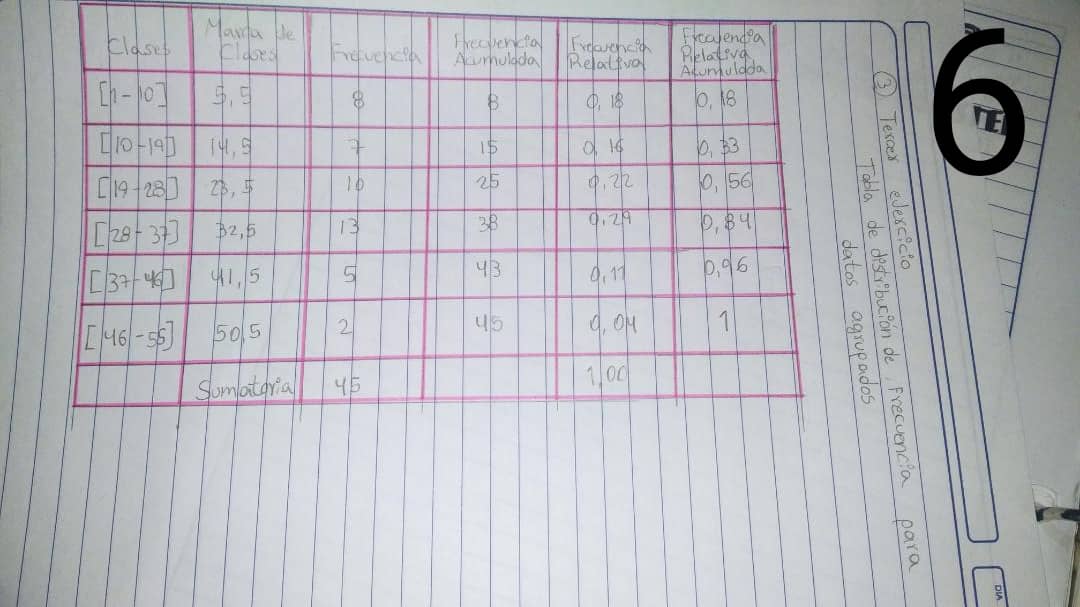 6
③ Tercer ejercicio
Tabla de distribución de frecuencia para
datos agrupados
Clases Marca de Clases Frecuencia Frecuencia Acumulada Frecuencia Relativa Frecuencia Relativa Acumulada
[1-10] 5,5 8 8 0,18 0,18
[10-19] 14,5 7 15 0,16 0,33
[19-28] 23,5 10 25 0,22 0,56
[28-37] 32,5 13 38 0,29 0,84
[37-46] 41,5 5 43 0,11 0,96
[46-55] 50,5 2 45 0,04 1
Sumatoria 45 1,00
DIA